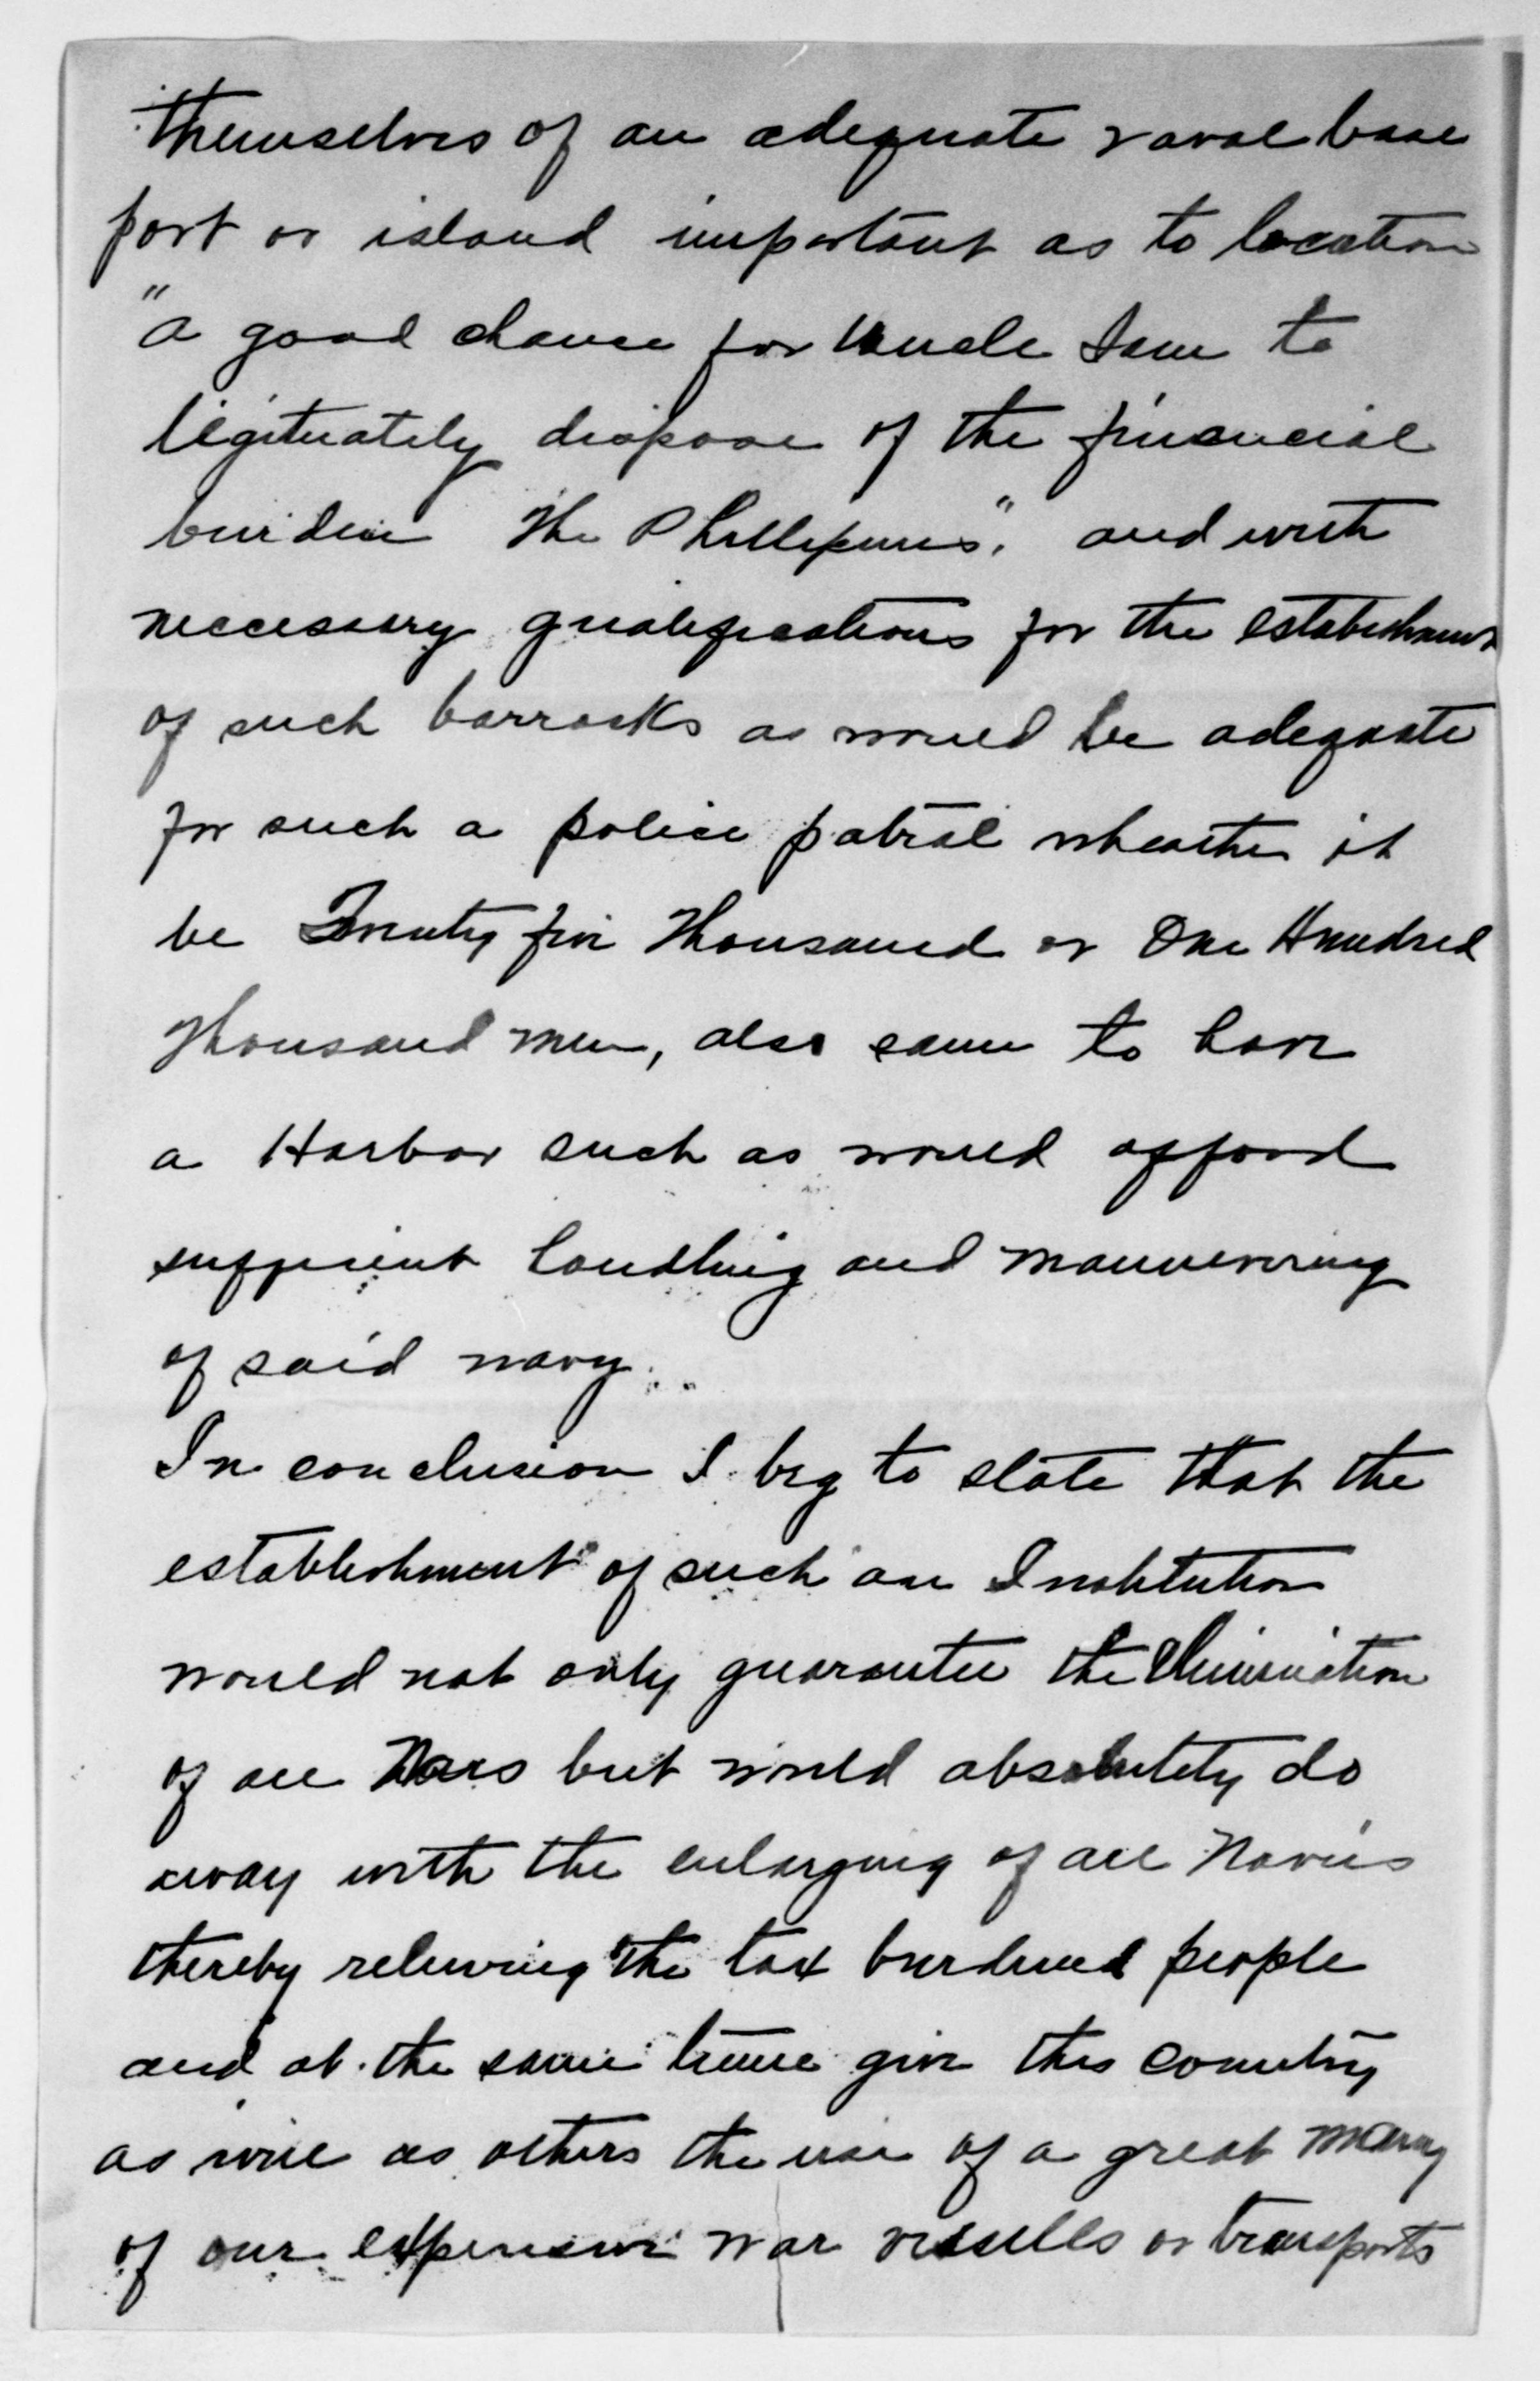 themselves of an adequate naval base
port or island important as to location
"a good chance for Uncle Sam to
legitmately dispose of the financial
burden The Phillepines", and with
neccessary qualifications for the establishment
of such barracks as would be adequate
for such a police patrol wheather it
be Twenty five Thousand or One Hundred
Thousand men, also same to have
a Harbor such as would afford
sufficient handling and manuevering
of said navy.
In conclusion I beg to state that the
establishment of such an Institution
would not only guarantee the Elimination
of all Wars but would absolutely do
away with the enlarging of all Navies
thereby relieving the tax burdened people
and at the same time give this country
as well as others the use of a great many
of our expensive war vessells or transports